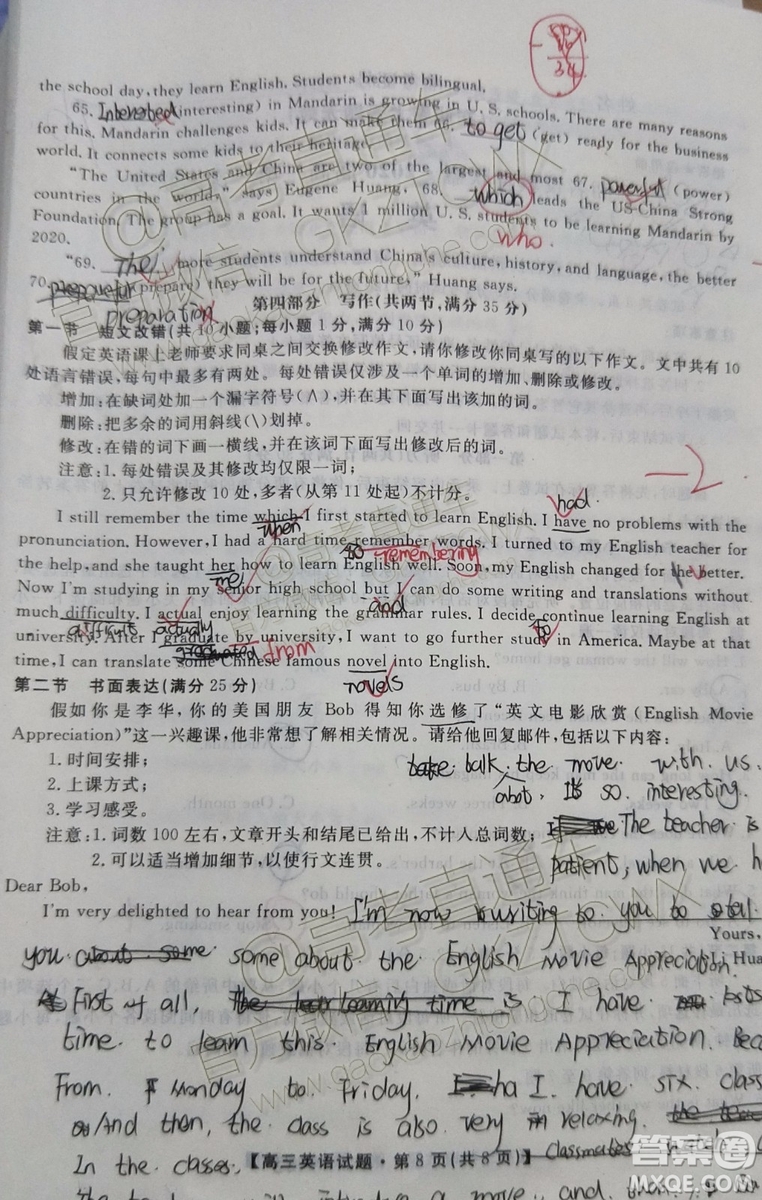 the school day, they learn English. Students become bilingual.
65. Interested (interesting) in Mandarin is growing in U. S. schools. There are many reasons
for this. Mandarin challenges kids. It can make them 66. to get (get) ready for the business
world. It connects some kids to their heritage.
"The United States and China are two of the largest and most 67. powerful (power)
countries in the world," says Eugene Huang, 68. which leads the US-China Strong
who
Foundation. The group has a goal. It wants 1 million U. S. students to be learning Mandarin by
2020.
"69. The more students understand China's culture, history, and language, the better
70. (prepare) they will be for the future," Huang says.
preparation
第四部分 写作(共两节,满分 35 分)
第一节 短文改错(共 10 小题;每小题 1 分,满分 10 分)
假定英语课上老师要求同桌之间交换修改作文,请你修改你同桌写的以下作文。文中共有 10
处语言错误,每句中最多有两处。每处错误仅涉及一个单词的增加、删除或修改。
增加:在缺词处加一个漏字符号(∧),并在其下面写出该加的词。
删除:把多余的词用斜线(\)划掉。
修改:在错的词下画一横线,并在该词下面写出修改后的词。
注意:1. 每处错误及其修改均仅限一词;
2. 只允许修改 10 处,多者(从第 11 处起)不计分。
-2
had
I still remember the time which I first started to learn English. I have no problems with the
when
pronunciation. However, I had a hard time remember words. I turned to my English teacher for
to remembering
the help, and she taught her how to learn English well. Soon, my English changed for the better.
me
Now I'm studying in my senior high school but I can do some writing and translations without
and
much difficulty. I actual enjoy learning the grammar rules. I decide continue learning English at
difficult actually to
university. After I graduate by university, I want to go further study in America. Maybe at that
graduated from
time, I can translate some Chinese famous novel into English.
novels
第二节 书面表达(满分 25 分)
假如你是李华,你的美国朋友 Bob 得知你选修了"英文电影欣赏(English Movie
Appreciation)"这一兴趣课,他非常想了解相关情况。请给他回复邮件,包括以下内容:
1. 时间安排;
2. 上课方式;
3. 学习感受。
talk the move with us.
about. It's so interesting.
注意:1. 词数 100 左右,文章开头和结尾已给出,不计入总词数;
The teacher is
2. 可以适当增加细节,以使行文连贯。
patient, when we h
Dear Bob,
I'm very delighted to hear from you! I'm now writing to you to tell
Yours,
you some about the English Movie Appreciation.
Li Hua
First of all, I have
time to learn this English Movie Appreciation. Bec
From Monday to Friday, I have six class
And then, the class is also very relaxing.
In the classes,
【高三英语试题·第 8 页(共 8 页)】
classmates
答案圈
MXQE.COM
@高考直通车
官方微信:GKZTCWX
www.gaokaozhitongche.com